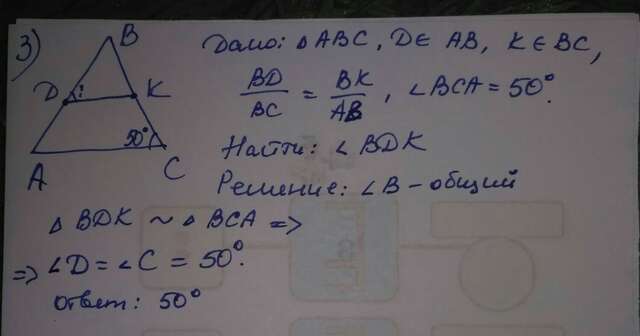 3)
B
D
K
50°
A
C
Дано: △ABC, D∈ AB, K∈BC,
BD/BC = BK/AB, ∠BCA = 50°.
Найти: ∠BDK
Решение: ∠B - общий
△ BDK ~ △ BCA =>
=> ∠D = ∠C = 50°.
ответ: 50°